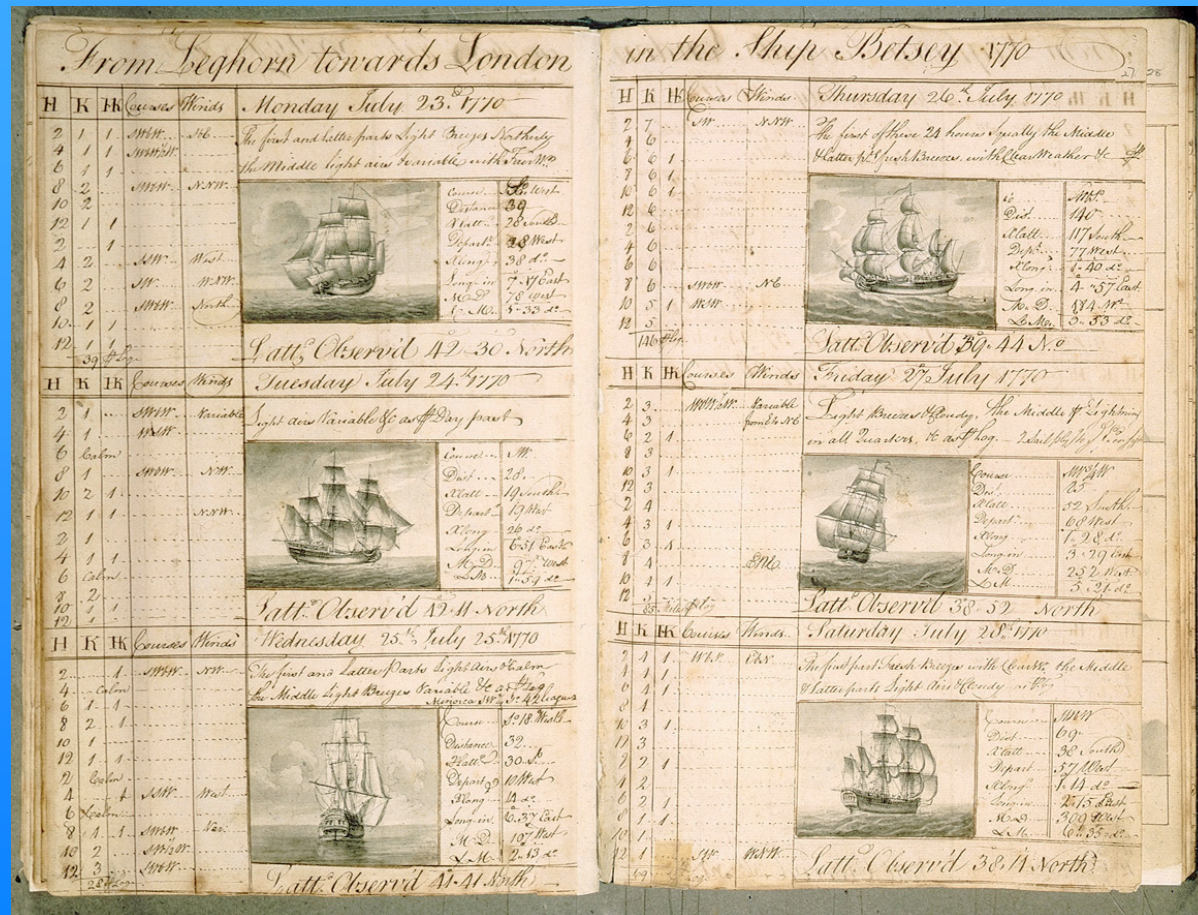 From Leghorn towards London
H K HK Courses Winds Monday July 23d 1770
The first and latter parts Light Breezes Northerly
the Middle light airs & variable with Fair Wr
2 1 1 SWbW
4 1 1
6 1 1
8 2 SWbW NNW
10 2
12 1 1
2 1
4 2 SSW West
6 2 SW WNW
8 2 SWbW North
10 1 1
12 1 1
39 pr Log
Course West
Distance 39
Dlatt 28 South
Depart 28 West
Dlong 38 do
Long in 7-17 East
M.D. 78 West
L.M. 5-33 do
Latt. Observ'd 42-30 North
H K HK Courses Winds Tuesday July 24th 1770
Light airs Variable &c as pr Day past
2 1 SWbW Variable
4 1 WSW
6 Calm
8 1 NW
10 2 1
12 1 1 NNW
2 1
4 1 1
6 Calm
8 2
10 1 1
12 1
Course SW
Dist 28
Dlatt 19 South
Depart 19 West
Dlong 26 do
Long in 6-51 East
M.D. 97 West
L.M. 1-59 do
Latt. Observ'd 42-11 North
H K HK Courses Winds Wednesday 25th July 25th 1770
The first and Latter Parts Light airs & Calm
the Middle Light Breezes Variable &c as pr Log
Minorca
2 1 SWbW NW
4 Calm
6 1 1
8 2 1
10 1
12 1 1
2 Calm
4 SSW West
6 Calm
8 1 1 SWbW Var
10 2
12 3 SWbW
28 pr Log
Course So 18 West
Distance 32
Dlatt 30 S
Depart 10 West
Dlong 14 do
Long in 6-37 East
M.D. 107 West
L.M. 2-13 do
Latt. Observ'd 41-41 North
in the Ship Betsey 1770
27 28
H K HK Courses Winds Thursday 26th July 1770
The first of these 24 hours Squally the Middle
& latter pts fresh Breezes with Clear Weather &c
2 7 SW NNW
4 6
6 6 1
8 6 1
10 6 1
12 6
2 6
4 6
6 6
8 6 SWbW NE
10 5 1 WSW
12 5
146 pr Log
Dist 140
Dlatt 117 South
Dept 77 West
Dlong 1-40 do
Long in 4-57 East
M.D. 184 Wt
L.M. 3-53 do
Latt. Observ'd 39-44 No
H K HK Courses Winds Friday 27 July 1770
Light Breezes & Cloudy, the Middle pt Lightning
in all Quarters, &c as pr Log
2 3 Variable
4 3
6 2 1
8 3
10 3 1
12 3
2 4
4 3 1
6 3 1
8 4 ENE
10 4 1
12 4
85 Miles pr Log
Course
Dist
Dlatt 52 South
Depart 68 West
Dlong 1-28 do
Long in 3-29 East
M.D. 252 West
L.M. 5-21 do
Latt. Observ'd 38-52 North
H K HK Courses Winds Saturday July 28th 1770
The first part Fresh Breezes with Clear Wr the Middle
& latter parts Light Airs & Cloudy
2 4 1 WbS EbN
4 4 1
6 4 1
8 4
10 3 1
12 3
2 2 1
4 2
6 2 1
8 1 1
10 1
12 1 WNW
Course SWbW
Dist 69
Dlatt 38 South
Depart 57 West
Dlong 1-14 do
Long in 2-15 East
M.D. 309 West
L.M. 6-35 do
Latt. Observ'd 38-14 North